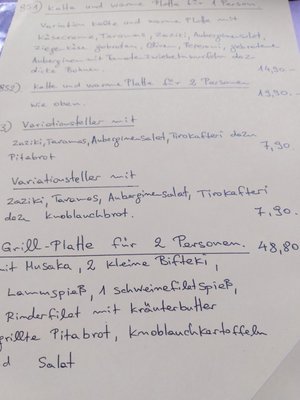 851) Kalte und warme Platte für 1 Person
Variation kalte und warme Platte mit
Käsecreme, Taramas, Zaziki, Auberginensalat,
Ziegenkäse gebraten, Oliven, Peperoni, gebratene
Auberginen mit Tomaten
dicke Bohnen. 14,90.-
852) Kalte und warme Platte für 2 Personen
wie oben. 19,90.-
3) Variationsteller mit
Zaziki, Taramas, Auberginensalat, Tirokafteri dazu
Pitabrot 7,90.
Variationsteller mit
Zaziki, Taramas, Auberginensalat, Tirokafteri
dazu Knoblauchbrot. 7,90.
Grill-Platte für 2 Personen. 48,80
mit Musaka, 2 kleine Bifteki,
Lammspieß, 1 Schweinefiletspieß,
Rinderfilet mit Kräuterbutter
grillte Pitabrot, Knoblauchkartoffeln
d Salat